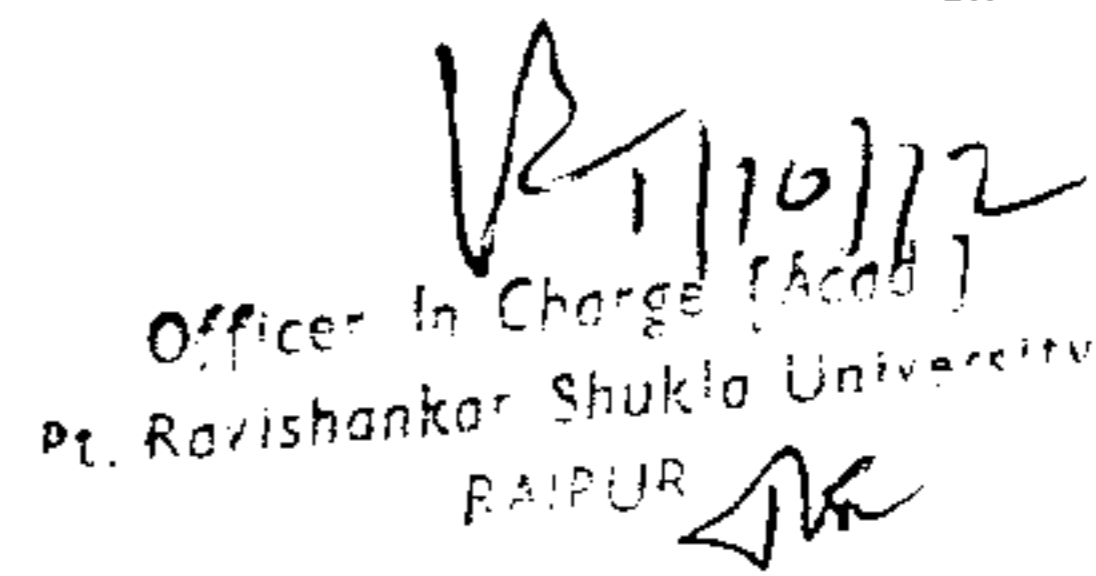 1/10/12
Officer In Charge [Acad]
Pt. Ravishankar Shukla University
RAIPUR